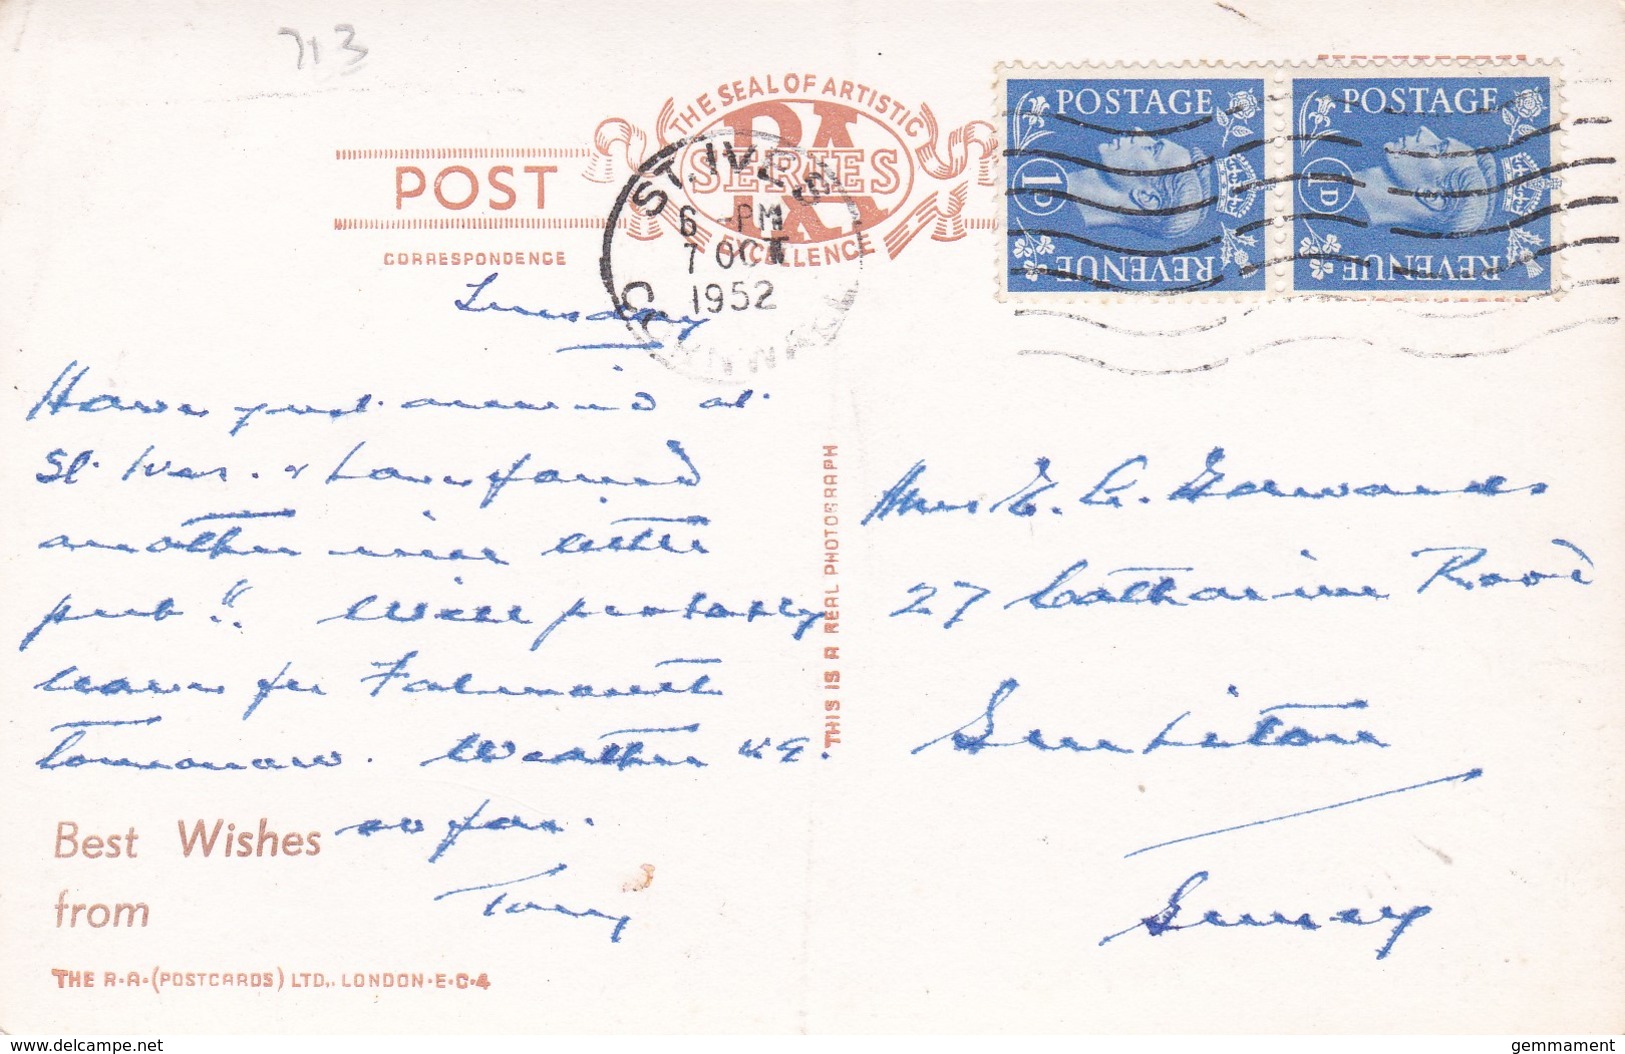 713
THE SEAL OF ARTISTIC
RA
SERIES
EXCELLENCE
POST
CORRESPONDENCE
ST. IVES
6 - PM
7 OCT
1952
CORNWALL
POSTAGE
1D
REVENUE
POSTAGE
1D
REVENUE
Tuesday
Have just arrived at
St. Ives. & have found
another nice little
pub!! Will probably
leave for Falmouth
tomorrow. Weather
so far.
Tony
Best Wishes
from
THE R·A·(POSTCARDS) LTD., LONDON·E·C·4
THIS IS A REAL PHOTOGRAPH
Mrs E. A. Edwards
27 Catharine Road
Surbiton
Surrey
www.delcampe.net
gemmament